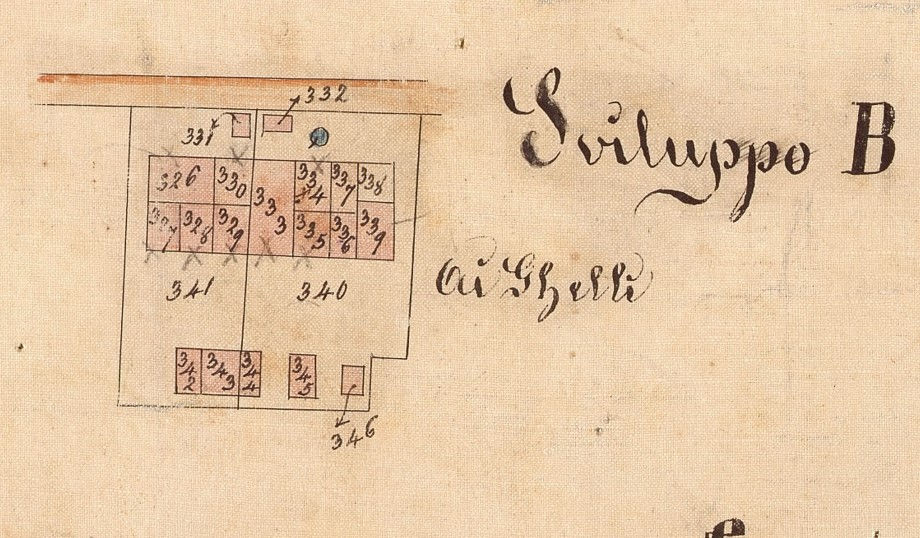 332
331
Sviluppo B
326 330 334 337 338
333
327 328 329 335 336 339
Ai Ghelli
341 340
342 343 344 345
346